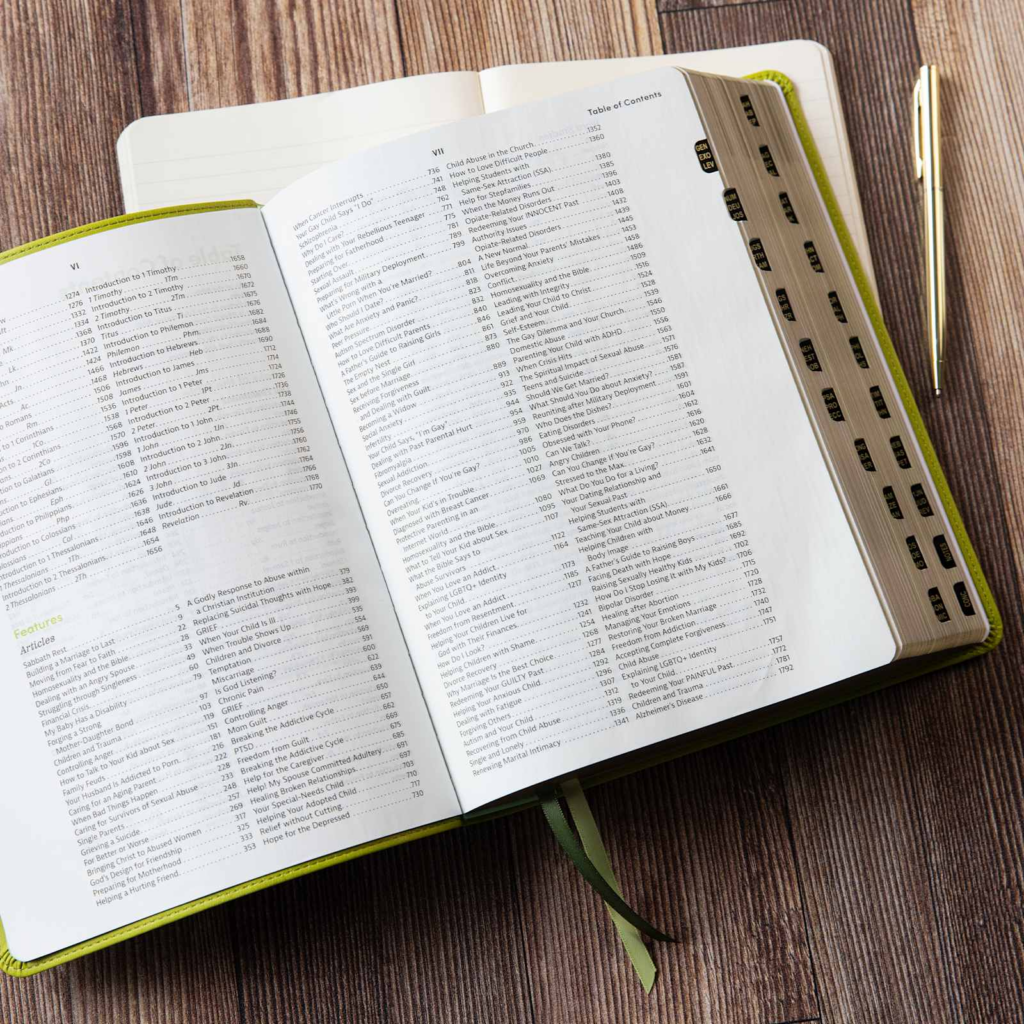 VI
1274
1276
1332
1334
1368
1370
1422
1424
1466
1468
1506
1508
1536
1538
1568
1570
1596
1598
1608
1610
1624
1626
1636
1638
1646
1648
1654
1656
Mk
Lk
Jn
Acts
Romans
Rm
to 1 Corinthians
1Co
to 2 Corinthians
2Co
to Galatians
Gl
to Ephesians
Eph
to Philippians
Php
to Colossians
Colossians Col
Introduction to 1 Thessalonians
1 Thessalonians 1Th
Introduction to 2 Thessalonians
2 Thessalonians 2Th
Introduction to 1 Timothy 1658
1 Timothy 1Tm 1660
Introduction to 2 Timothy 1670
2 Timothy 2Tm 1672
Introduction to Titus 1675
Titus Ti 1676
Introduction to Philemon 1682
Philemon Phm 1684
Introduction to Hebrews 1688
Hebrews Heb 1690
Introduction to James 1712
James Jms 1714
Introduction to 1 Peter 1724
1 Peter 1Pt 1726
Introduction to 2 Peter 1736
2 Peter 2Pt 1738
Introduction to 1 John 1744
1 John 1Jn 1746
Introduction to 2 John 1755
2 John 2Jn 1756
Introduction to 3 John 1759
3 John 3Jn 1760
Introduction to Jude 1762
Jude Jd 1764
Introduction to Revelation 1768
Revelation Rv 1770
Features
Articles
Sabbath Rest 5
Building a Marriage to Last
Moving from Fear to Faith 22
Homosexuality and the Bible 28
Dealing with an Angry Spouse 33
Struggling through Singleness 49
Financial Crisis 60
My Baby Has a Disability 79
Forging a Strong
Mother-Daughter Bond 97
Children and Trauma 103
Controlling Anger 119
How to Talk to Your Kid about Sex 151
Family Feuds 181
Your Husband Is Addicted to Porn 216
Caring for an Aging Parent 222
When Bad Things Happen 228
Caring for Survivors of Sexual Abuse 233
Single Parents 248
Grieving a Suicide 257
For Better or Worse 269
Bringing Christ to Abused Women 317
God's Design for Friendship 325
Preparing for Motherhood 333
Helping a Hurting Friend 353
A Godly Response to Abuse within
a Christian Institution 379
Replacing Suicidal Thoughts with Hope 382
GRIEF 393
When Your Child Is Ill 399
When Trouble Shows Up 534
Children and Divorce 535
Temptation 569
Miscarriage 591
Is God Listening? 600
Chronic Pain 622
GRIEF 639
Controlling Anger 644
Mom Guilt 650
Breaking the Addictive Cycle 657
PTSD 662
Freedom from Guilt 669
Breaking the Addictive Cycle 675
Help for the Caregiver 685
Help! My Spouse Committed Adultery 691
Healing Broken Relationships 697
Your Special-Needs Child 703
Helping Your Adopted Child 710
Relief without Cutting 717
Hope for the Depressed 730
VII
Table of Contents
When Cancer Interrupts 736
Your Gay Child Says "I Do" 741
Schizophrenia 748
Why Do I Care? 762
Dealing with Your Rebellious Teenager 771
Preparing for Fatherhood 775
Starting Over 781
Sexual Abuse 789
Preparing for Military Deployment 799
What's Wrong with a
Little Porn When You're Married? 804
Who Should I Date? 811
What Are Anxiety and Panic? 816
Peer Pressure 818
Autism Spectrum Disorder 823
How to Love Difficult Parents 832
A Father's Guide to Raising Girls 840
The Empty Nest 846
Sex and the Single Girl 861
Sex before Marriage 873
Receiving Forgiveness
and Dealing with Guilt 889
Becoming a Widow 913
Social Anxiety 922
Infertility 935
Your Child Says, "I'm Gay" 944
Dealing with Past Parental Hurt 954
Fibromyalgia 959
Sexual Addiction 970
Divorce Recovery 986
Can You Change If You're Gay? 1005
Overeating 1010
When Your Kid's in Trouble 1027
Diagnosed with Breast Cancer 1069
Protecting Parenting in an
Internet World
Homosexuality and the Bible 1095
What to Tell Your Kid about Sex 1107
What the Bible Says to
Abuse Survivors 1122
When You Love an Addict 1164
Explaining LGBTQ+ Identity
to Your Child 1173
When You Love an Addict 1185
Freedom from Resentment 1217
Helping Your Children Live for
God with Their Finances 1232
How Do I Look? 1241
Helping Children with Shame 1254
Divorce Recovery 1268
Why Marriage Is the Best Choice 1277
Redeeming Your GUILTY Past 1284
Helping Your Anxious Child 1292
Dealing with Fatigue 1296
Forgiving Others 1307
Autism and Your Child 1312
Recovering from Child Abuse 1319
Single and Lonely 1336
Renewing Marital Intimacy 1341
Child Abuse in the Church 1352
How to Love Difficult People 1360
Helping Students with
Same-Sex Attraction (SSA) 1380
Help for Stepfamilies 1385
When the Money Runs Out 1396
Opiate-Related Disorders 1403
Redeeming Your INNOCENT Past 1408
Authority Issues 1432
Opiate-Related Disorders 1439
A New Normal 1445
Life Beyond Your Parents' Mistakes 1453
Overcoming Anxiety 1458
Conflict 1486
Homosexuality and the Bible 1509
Leading with Integrity 1516
Leading Your Child to Christ 1524
Grief and Your Child 1528
Self-Esteem 1539
The Gay Dilemma and Your Church 1546
Domestic Abuse 1550
Parenting Your Child with ADHD 1556
When Crisis Hits 1563
The Spiritual Impact of Sexual Abuse 1571
Teens and Suicide 1576
Should We Get Married? 1583
What Should You Do about Anxiety? 1587
Reuniting after Military Deployment 1591
Who Does the Dishes? 1603
Eating Disorders 1604
Obsessed with Your Phone? 1612
Can We Talk? 1616
Angry Children 1620
Can You Change If You're Gay? 1628
Stressed to the Max 1632
What Do You Do for a Living? 1641
Your Dating Relationship and
Your Sexual Past 1650
Helping Students with
Same-Sex Attraction (SSA) 1661
Teaching Your Child about Money 1666
Helping Children with
Body Image 1677
A Father's Guide to Raising Boys 1685
Facing Death with Hope 1692
Raising Sexually Healthy Kids 1702
How Do I Stop Losing It with My Kids? 1706
Bipolar Disorder 1715
Healing after Abortion 1720
Managing Your Emotions 1728
Restoring Your Broken Marriage 1732
Freedom from Addiction 1740
Accepting Complete Forgiveness 1747
Child Abuse 1751
Explaining LGBTQ+ Identity
to Your Child 1757
Redeeming Your PAINFUL Past 1772
Children and Trauma 1783
Alzheimer's Disease 1792
GEN
EXO
LEV
NUM
DEU
JOS